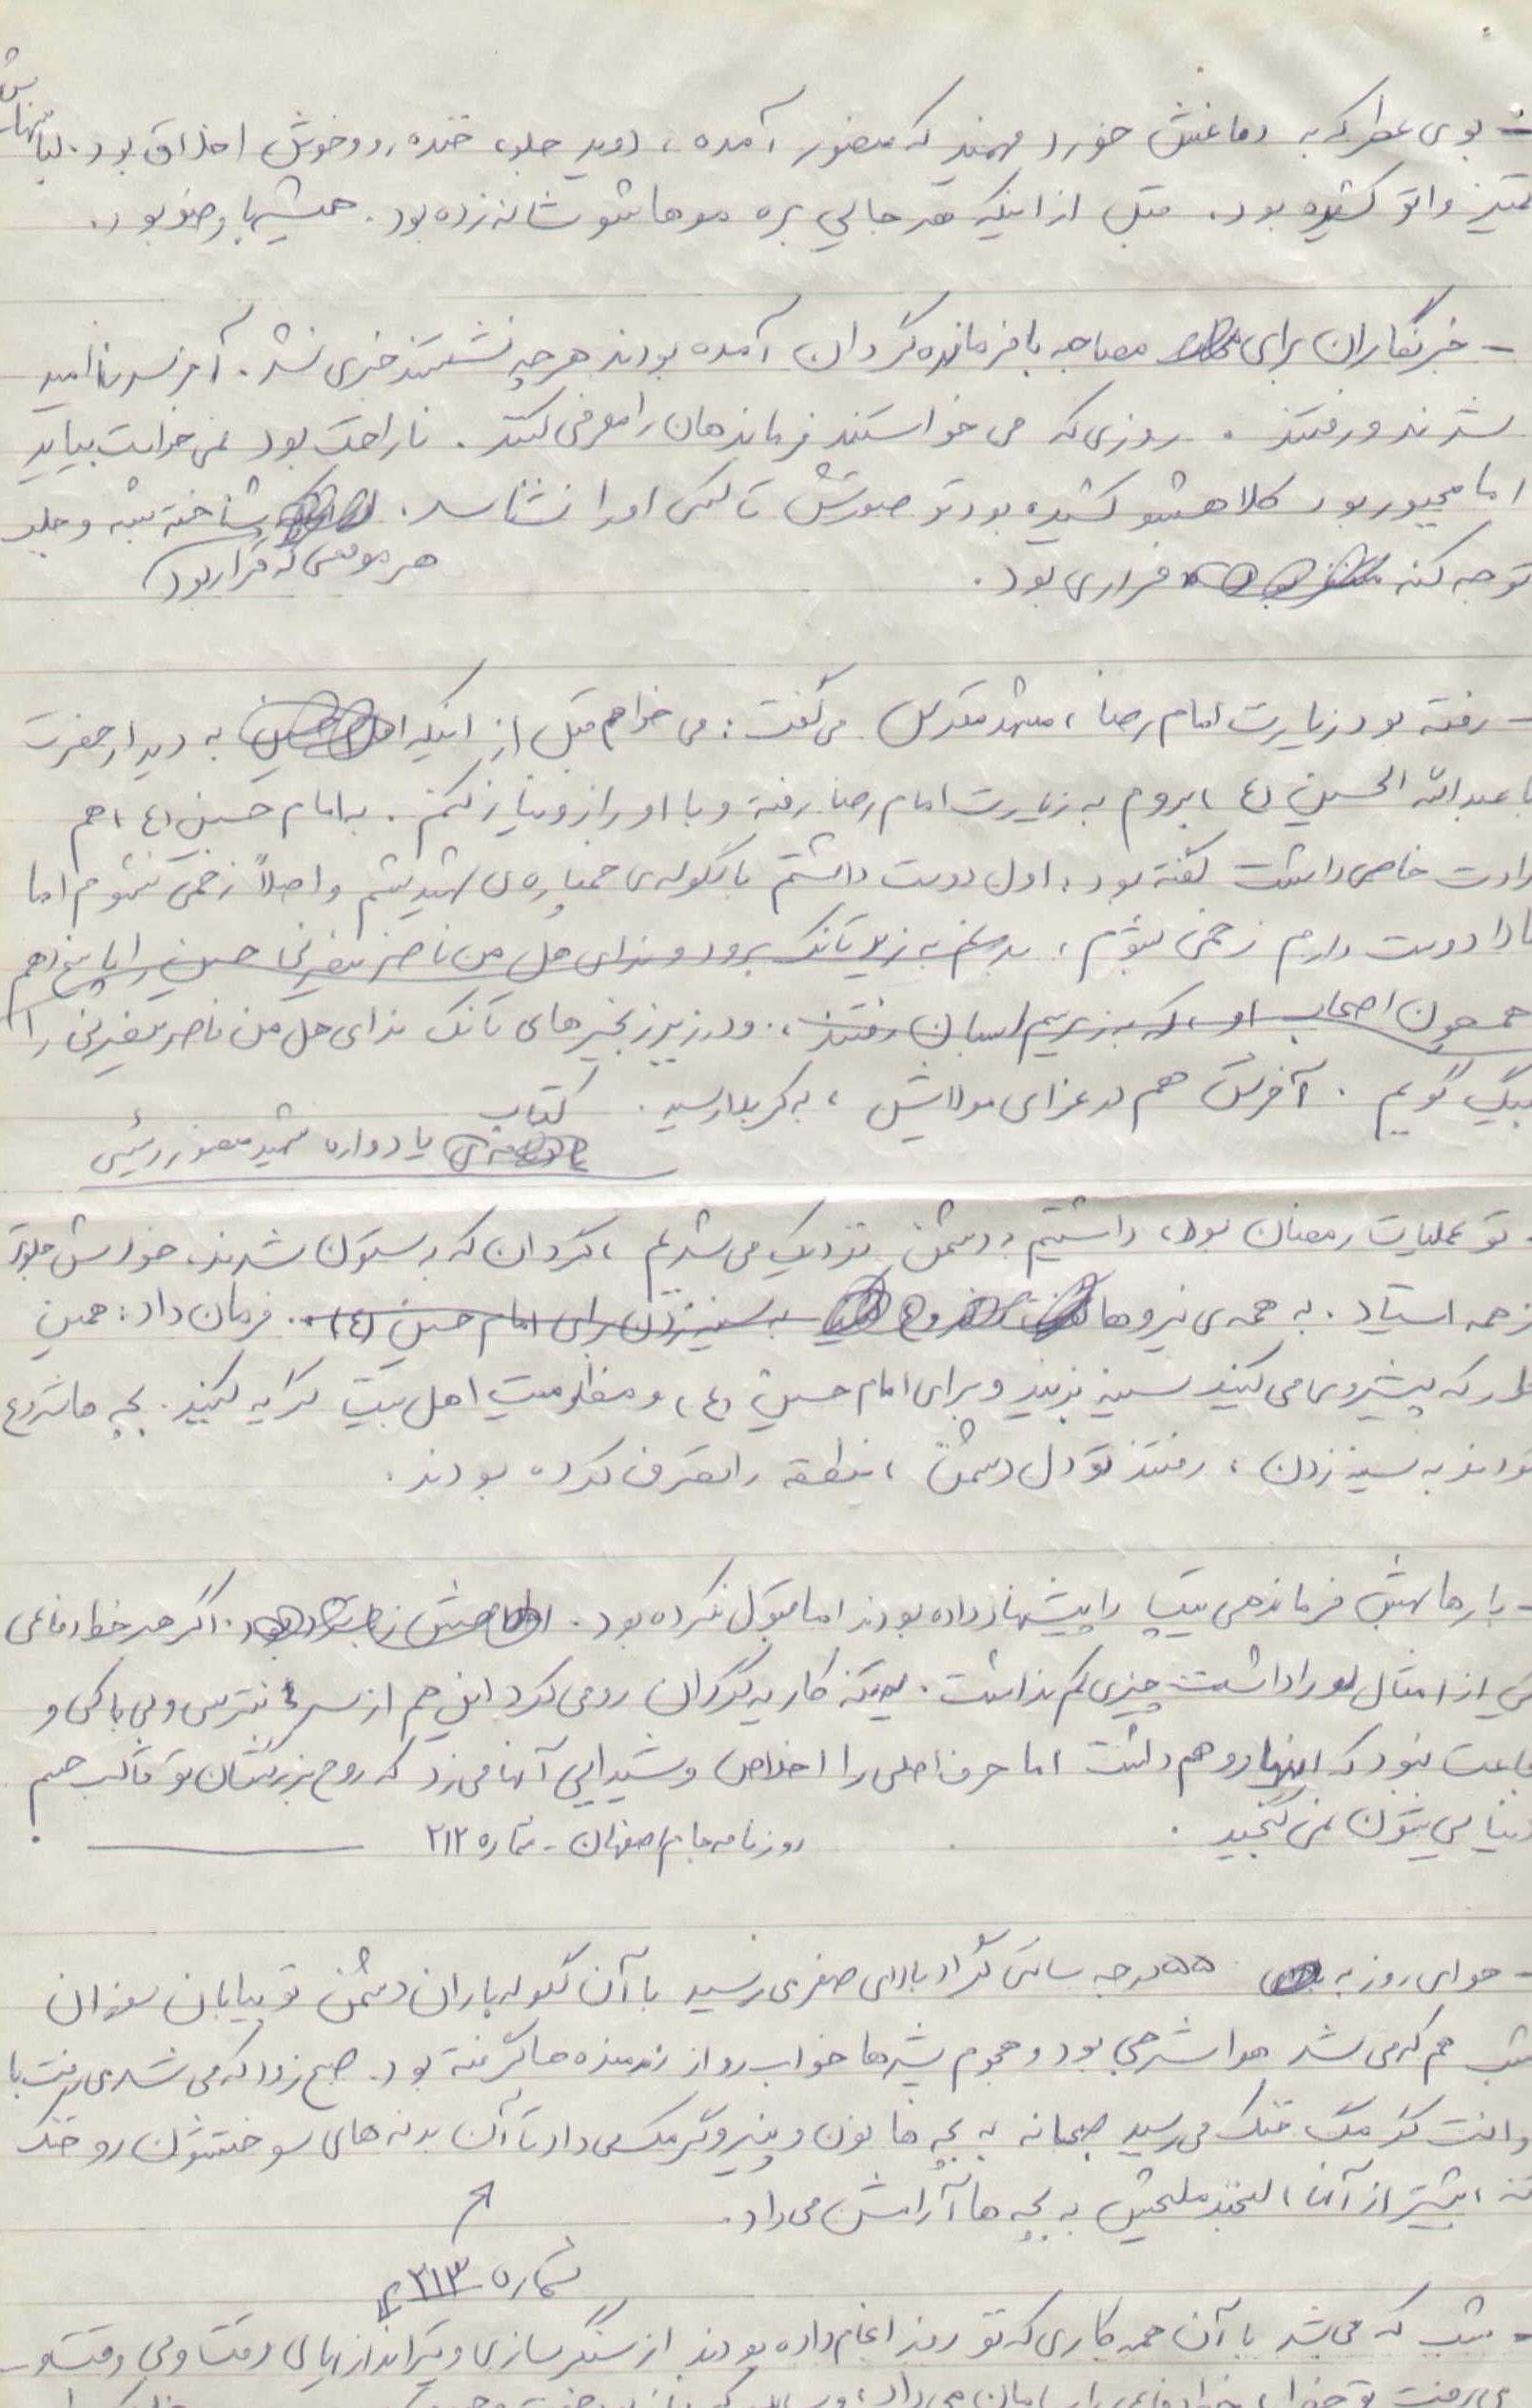 - بوی عطر که به دماغش خورد فهمید که منصور آمده، دوید جلو، خنده رو و خوش اخلاق بود. لباسهاش
تمیز و اتو کشیده بود. قبل از اینکه هر جایی بره موهاشو شانه زده بود. همیشه با وضو بود.
- خبرنگاران برای مصاحبه با فرمانده گردان آمده بودند هر چه نشستند خبری نشد. آخر سر ناامید
شدند و رفتند. روزی که می خواستند فرماندهان را معرفی کنند. ناراحت بود نمی خواست بیاید
اما مجبور بود کلاهشو کشیده بود تو صورتش تا کسی او را نشناسد. هر موقعی که قرار بود شناخته بشه و جلب
توجه کنه فراری بود.
- رفته بود زیارت امام رضا، مشهد مقدس می گفت: می خواهم قبل از اینکه به دیدار حضرت
ابا عبدالله الحسین (ع) بروم به زیارت امام رضا رفته و با او راز و نیاز کنم. به امام حسین (ع) هم
ارادت خاصی داشت گفته بود: اول دوست داشتم با گلوله ی خمپاره ی شهید بشم و اصلاً زخمی نشوم اما
دوست دارم زخمی بشوم، بدنم به زیر تانک برود و ندای هل من ناصر ینصرنی حسین را پاسخ دهم
همچون اصحاب او، که به زیر سم اسبان رفتند. و در زیر زنجیرهای تانک ندای هل من ناصر ینصرنی را
لبیک گویم. آخرش هم در عزای مولایش، به کربلا رسید. کتاب
یادواره شهید منصور رئیسی
- تو عملیات رمضان بود، داشتیم به دشمن نزدیک می شدیم، گردان که به ستون شدند، خودش جلوتر
از همه ایستاد. به همه ی نیروها به سینه زدن برای امام حسین (ع). فرمان داد: همین
طور که پیشروی می کنید سینه بزنید و برای امام حسین (ع) و مظلومیت اهل بیت گریه کنید. بچه ها شروع
کردند به سینه زدن، رفتند تو دل دشمن، منطقه را تصرف کرده بودند.
- بارها بهش فرماندهی تیپ را پیشنهاد داده بودند اما قبول نکرده بود. اگر هر خط دفاعی
یکی از امثال او را داشت چیزی کم نداشت. یه تنه کار یه گردان رو می کرد این هم از سر نترس و بی باکی و
شجاعت نبود که اینها رو هم داشت اما حرف اصلی را اخلاص و شیدایی آنها می زد که روح بزرگشان تو قالب جسم
دنیایی شون نمی گنجید.
روزنامه جام اصفهان - شماره ۲۱۲
- هوای روز به ۵۵ درجه سانتی گراد بالای صفر می رسید با آن گلوله باران دشمن تو بیابان سوزان
شب هم که می شد هوا شرجی بود و هجوم پشه ها خواب رو از رزمنده ها گرفته بود. صبح زود که می شد می رفت با
وانت کلمن خنک می رسید صبحانه به بچه ها نون و پنیر و گرمک می داد تا آن بدنه های سوختشون رو خنک
کنه، بیشتر از آن، لبخند ملیحش به بچه ها آرامش می داد.
شماره ۲۱۳
- شب که می شد با آن همه کاری که تو روز انجام داده بودند از سنگر سازی و تیراندازیهای وقت و بی وقت